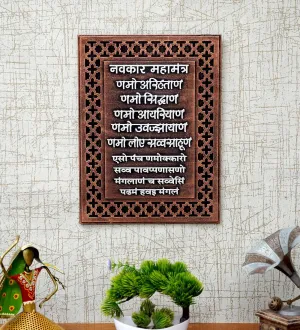 नवकार महामंत्र
णमो अरिहंताणं
णमो सिद्धाणं
णमो आयरियाणं
णमो उवज्झायाणं
णमो लोए सव्वसाहूणं
एसो पंच णमोक्कारो
सव्व पावप्पणासणो
मंगलाणं च सव्वेसिं
पढमं हवइ मंगलं